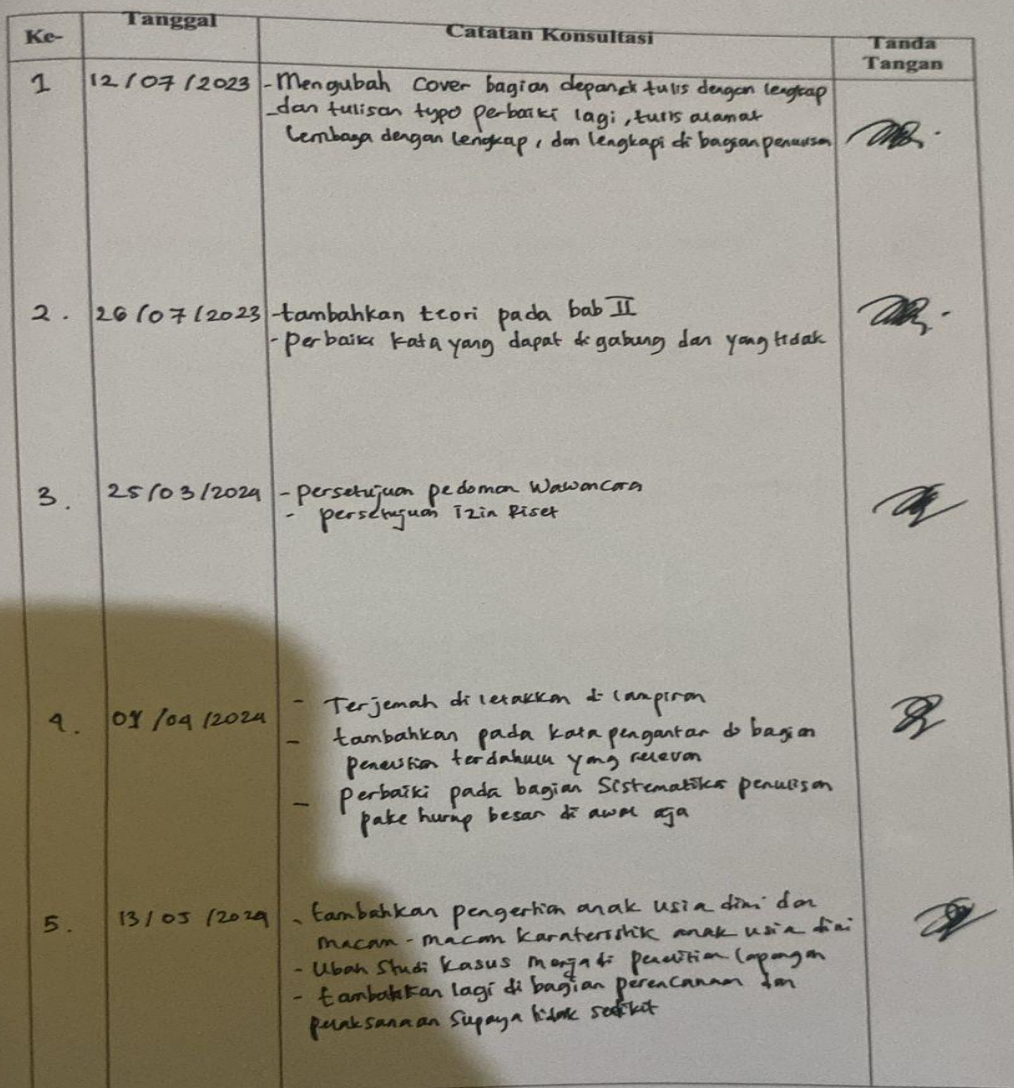 Ke- Tanggal Catatan Konsultasi Tanda Tangan
1 12/07/2023 -Mengubah Cover bagian depan tulis dengan lengkap
-dan tulisan typo perbaiki lagi, tulis alamat
Lembaga dengan lengkap, dan lengkapi di bagian penulisan
2. 26/07/2023 -tambahkan teori pada bab II
-perbaiki kata yang dapat di gabung dan yang tidak
3. 25/03/2024 -persetujuan pedoman Wawancara
- persetujuan Izin Riset
4. /04/2024 - Terjemah di letakkan di lampiran
- tambahkan pada kata pengantar di bagian
penelitian terdahulu yang relevan
- perbaiki pada bagian Sistematika penulisan
pake hurup besar di awal aja
5. 13/05/2024 - tambahkan pengertian anak usia dini dan
macam-macam karateristik anak usia dini
- Ubah Studi Kasus menjadi penelitian lapangan
- tambahkan lagi di bagian perencanaan dan
pelaksanaan Supaya tidak sedikit